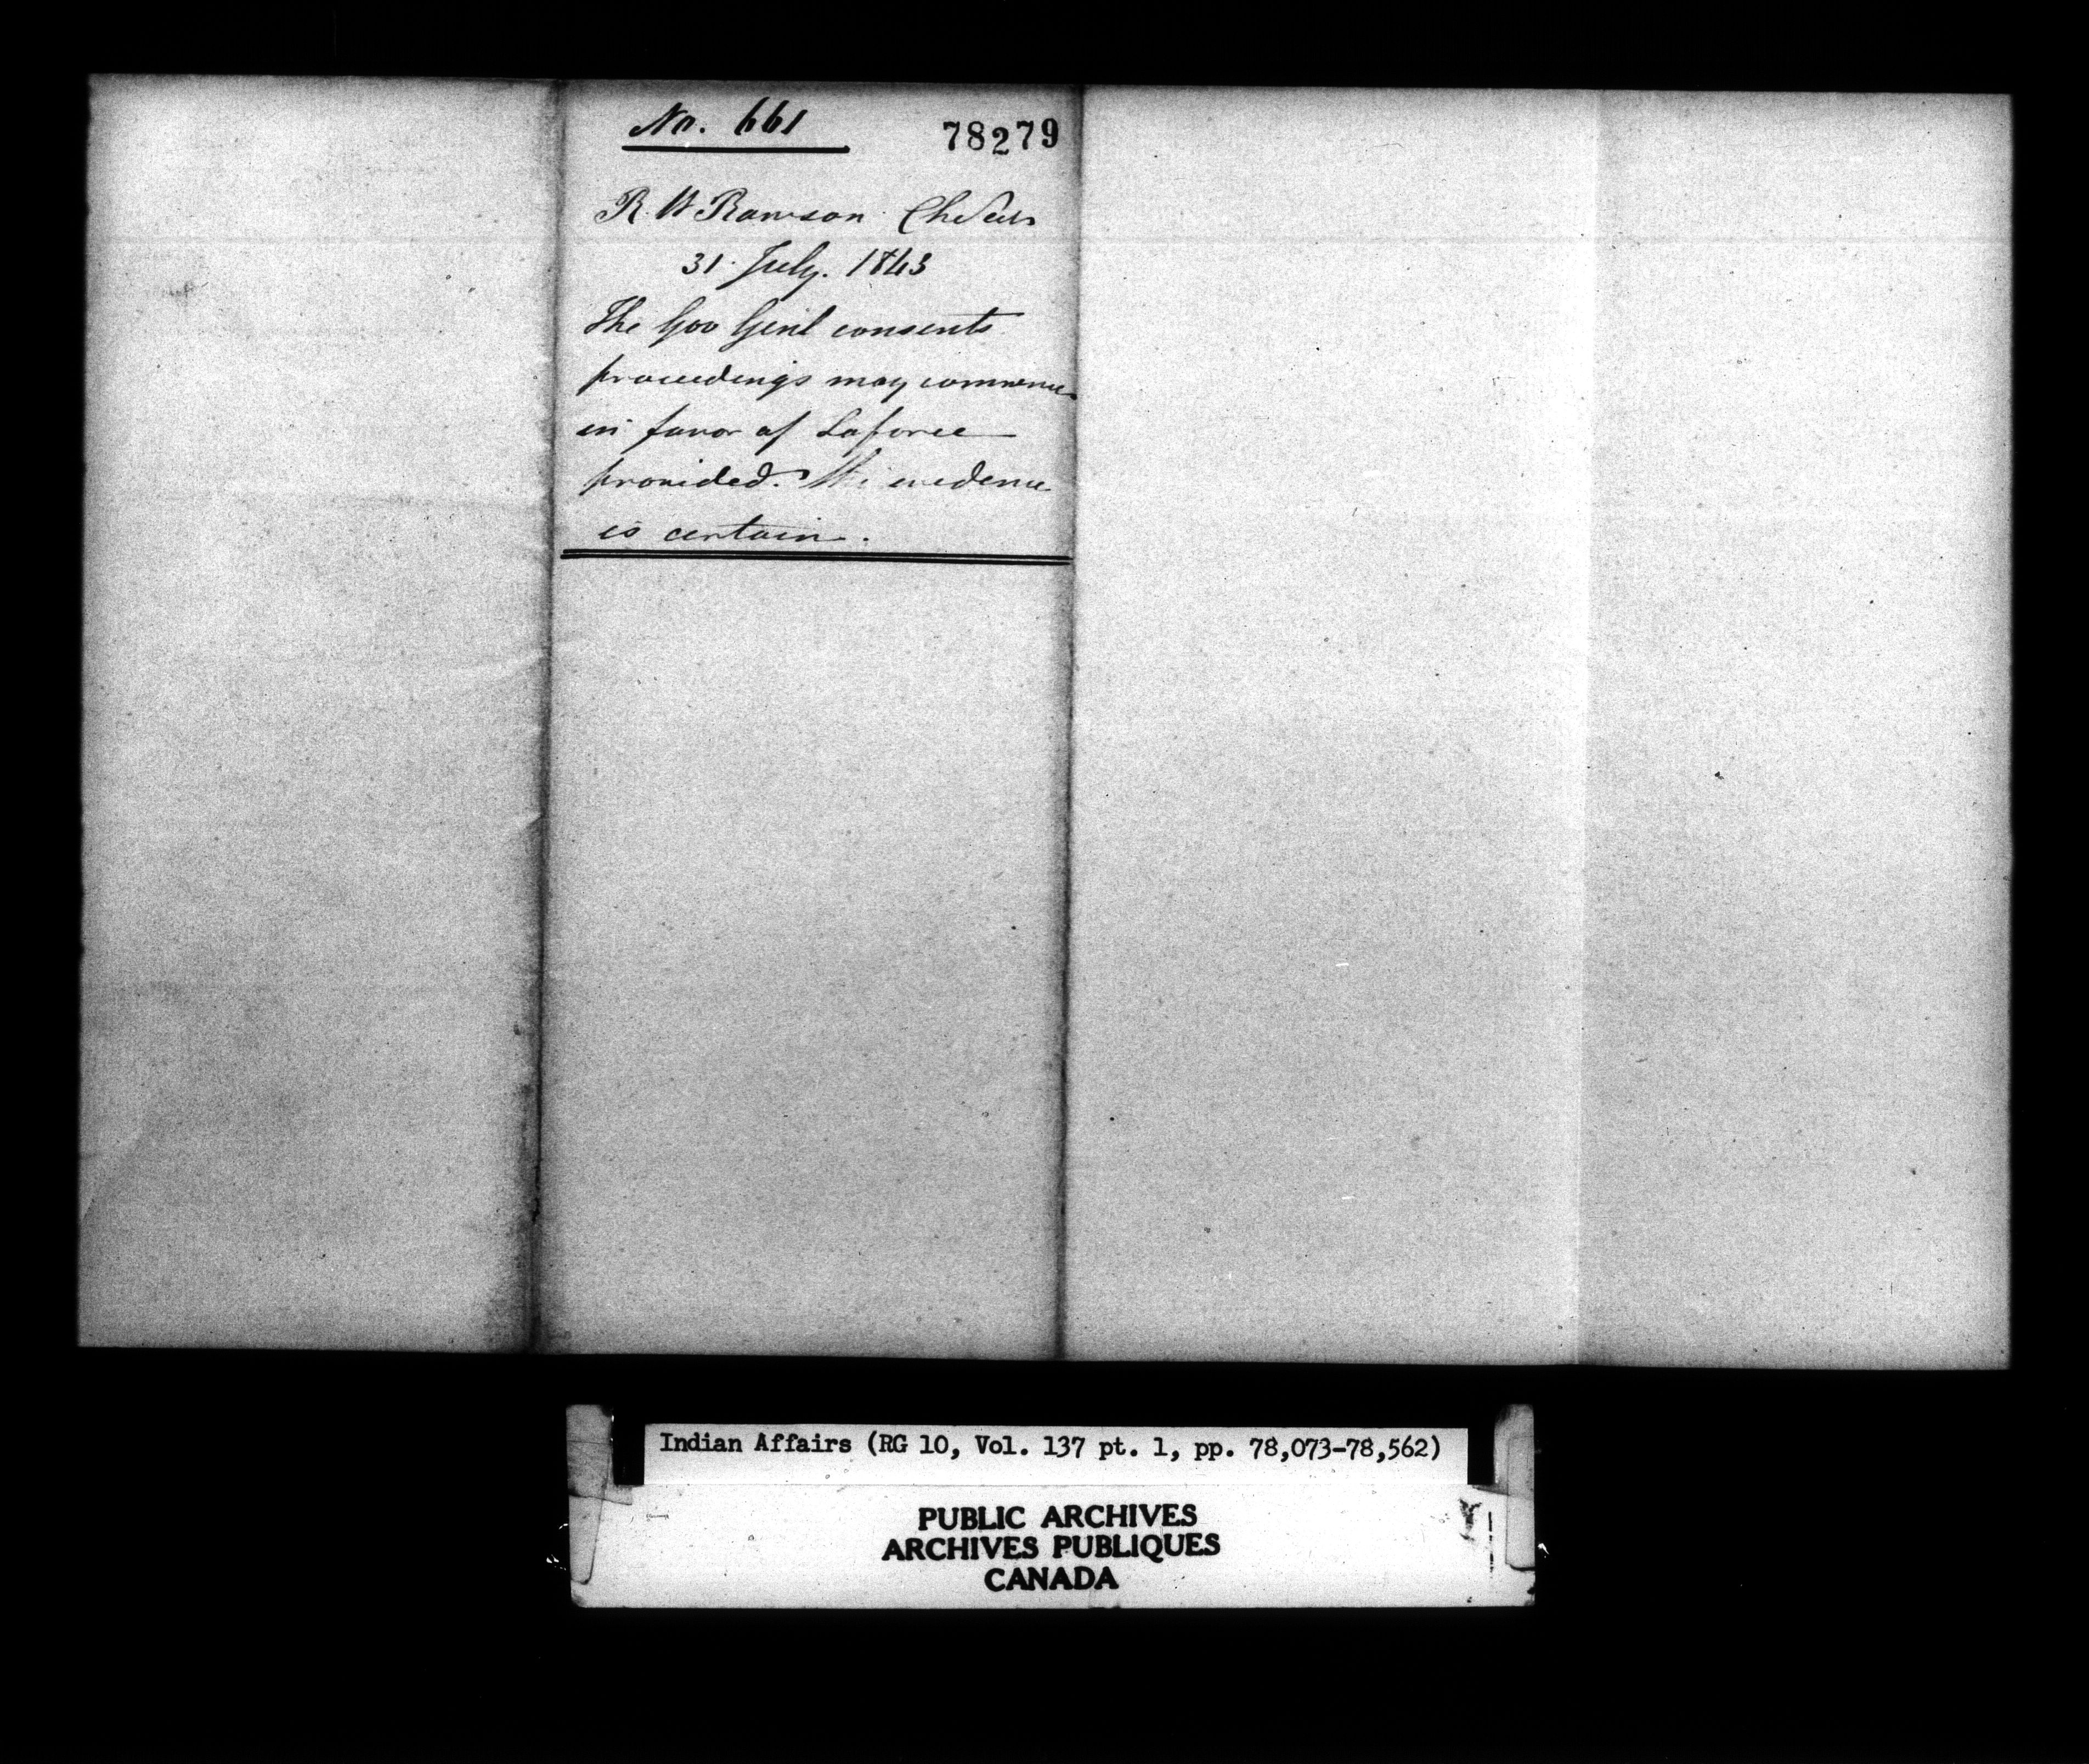 No. 661
78279
R. W Rawson Ch Secry
31 July. 1843
The Gov Genl consents
proceedings may commence
in favor of Laforce
provided. the evidence
is certain.
Indian Affairs (RG 10, Vol. 137 pt. 1, pp. 78,073-78,562)
PUBLIC ARCHIVES
ARCHIVES PUBLIQUES
CANADA